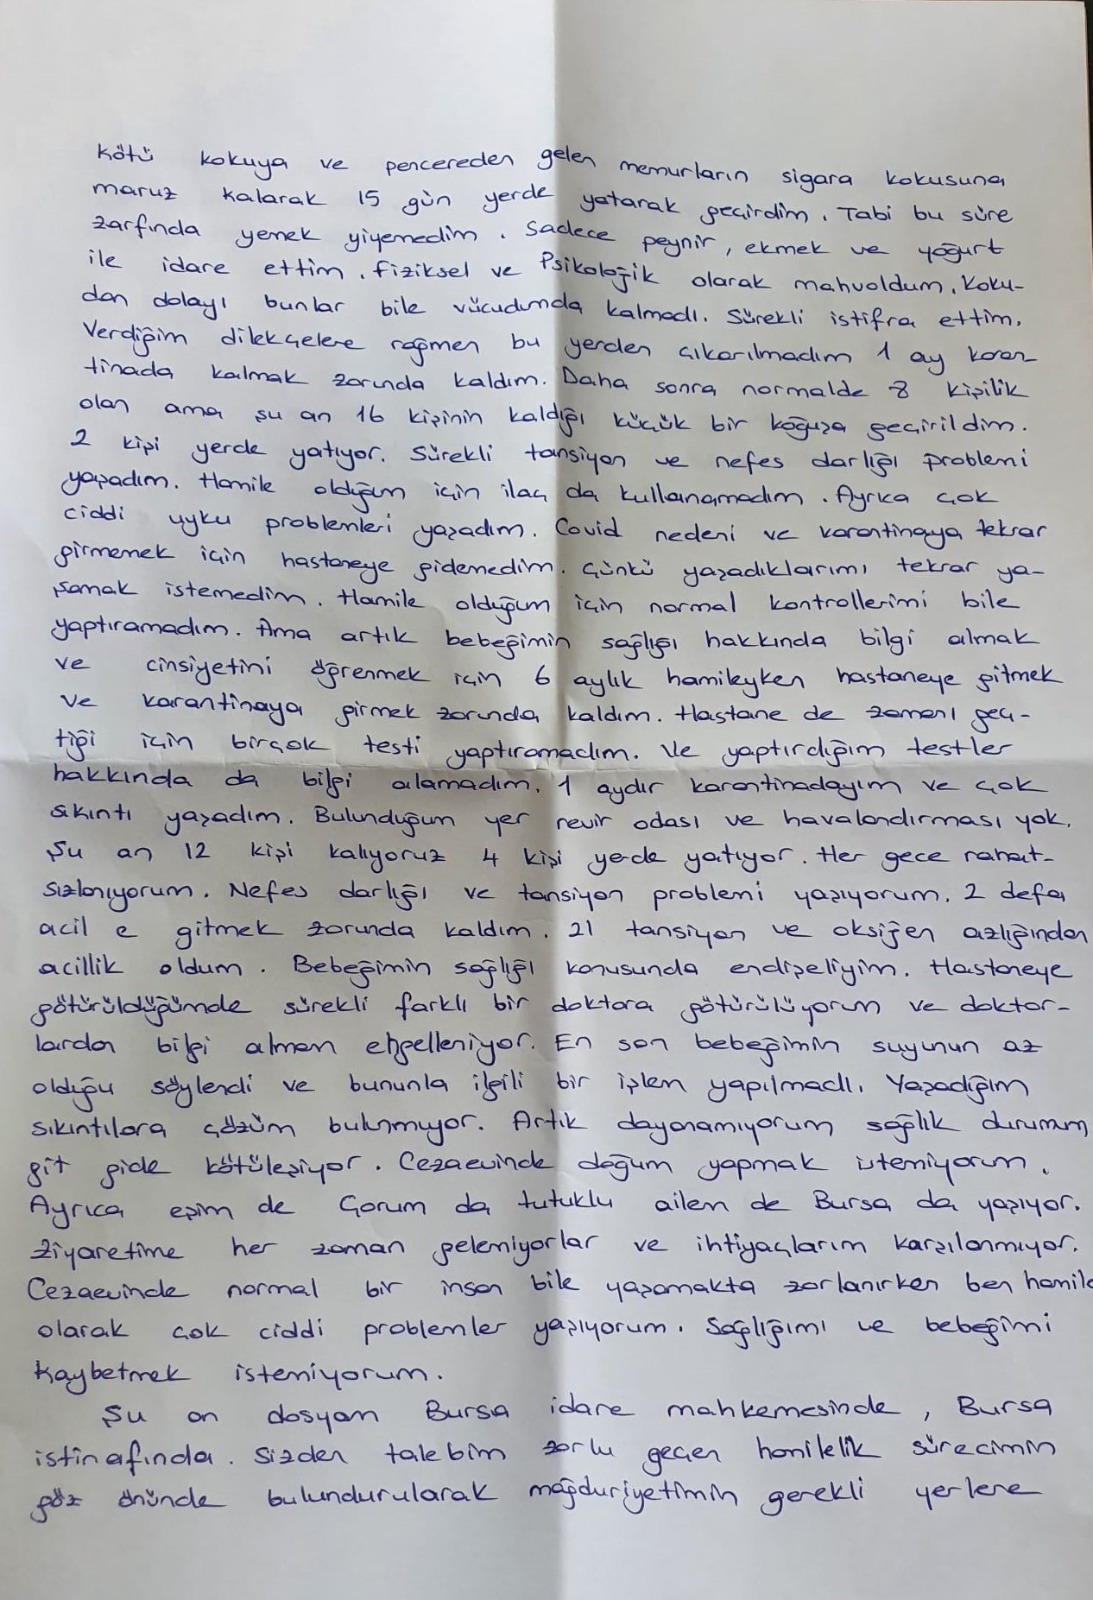 kötü kokuya ve pencereden gelen memurların sigara kokusuna
maruz kalarak 15 gün yerde yatarak geçirdim. Tabi bu süre
zarfında yemek yiyemedim. Sadece peynir, ekmek ve yoğurt
ile idare ettim. Fiziksel ve Psikolojik olarak mahvoldum. Koku-
dan dolayı bunlar bile vücudumda kalmadı. Sürekli istifra ettim.
Verdiğim dilekçelere rağmen bu yerden çıkarılmadım 1 ay karan-
tinada kalmak zorunda kaldım. Daha sonra normalde 8 kişilik
olan ama şu an 16 kişinin kaldığı küçük bir koğuşa geçirildim.
2 kişi yerde yatıyor. Sürekli tansiyon ve nefes darlığı problemi
yaşadım. Hamile olduğum için ilaç da kullanamadım. Ayrıca çok
ciddi uyku problemleri yaşadım. Covid nedeni ve karantinaya tekrar
girmemek için hastaneye gidemedim. Çünkü yaşadıklarımı tekrar ya-
şamak istemedim. Hamile olduğum için normal kontrollerimi bile
yaptıramadım. Ama artık bebeğimin sağlığı hakkında bilgi almak
ve cinsiyetini öğrenmek için 6 aylık hamileyken hastaneye gitmek
ve karantinaya girmek zorunda kaldım. Hastane de zamanı geç-
tiği için birçok testi yaptıramadım. Ve yaptırdığım testler
hakkında da bilgi alamadım. 1 aydır karantinadayım ve çok
sıkıntı yaşadım. Bulunduğum yer revir odası ve havalandırması yok.
Şu an 12 kişi kalıyoruz 4 kişi yerde yatıyor. Her gece rahat-
sızlanıyorum. Nefes darlığı ve tansiyon problemi yaşıyorum. 2 defa
acil e gitmek zorunda kaldım. 21 tansiyon ve oksijen azlığından
acillik oldum. Bebeğimin sağlığı konusunda endişeliyim. Hastaneye
götürüldüğümde sürekli farklı bir doktora götürülüyorum ve doktor-
lardan bilgi almam engelleniyor. En son bebeğimin suyunun az
olduğu söylendi ve bununla ilgili bir işlem yapılmadı. Yaşadığım
sıkıntılara çözüm bulunmuyor. Artık dayanamıyorum sağlık durumum
git gide kötüleşiyor. Cezaevinde doğum yapmak istemiyorum.
Ayrıca eşim de Çorum da tutuklu ailem de Bursa da yaşıyor.
Ziyaretime her zaman gelemiyorlar ve ihtiyaçlarım karşılanmıyor.
Cezaevinde normal bir insan bile yaşamakta zorlanırken ben hamile
olarak çok ciddi problemler yaşıyorum. Sağlığımı ve bebeğimi
kaybetmek istemiyorum.
Şu an dosyam Bursa idare mahkemesinde, Bursa
istinafında. Sizden talebim zorlu geçen hamilelik sürecimin
göz önünde bulundurularak mağduriyetimin gerekli yerlere